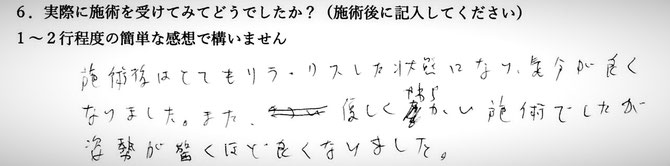 ６．実際に施術を受けてみてどうでしたか？（施術後に記入してください）
１～２行程度の簡単な感想で構いません
施術後はとてもリラックスした状態になり、気分が良く
なりました。また、優しく柔らかい施術でしたが
姿勢が驚くほど良くなりました。